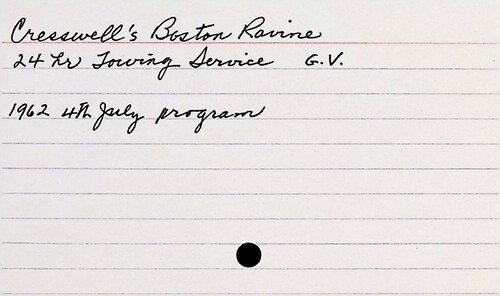 Cresswell's Boston Ravine
24 hr Towing Service G.V.
1962 4th July program